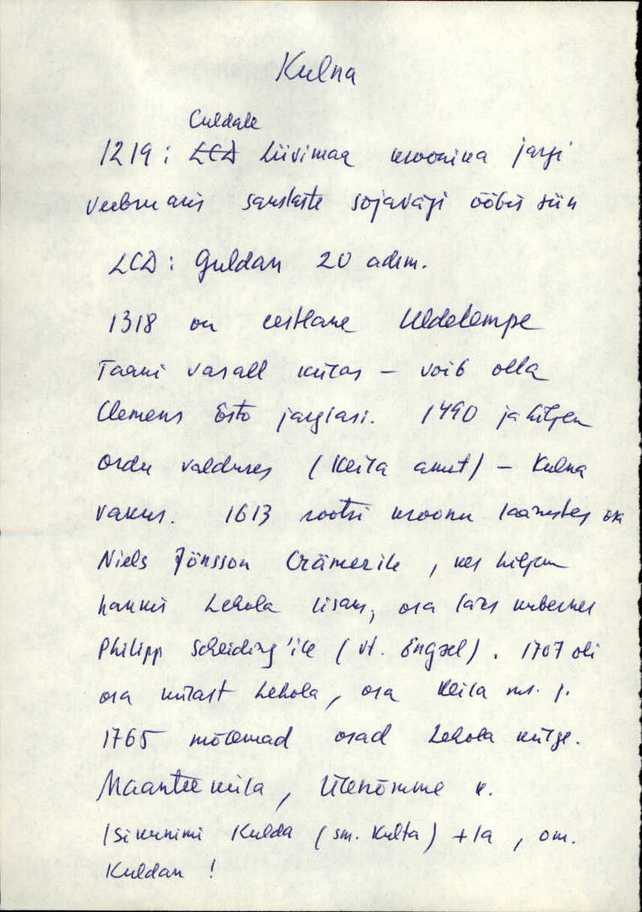 Kulna
Culdale
1219: LCD Liivimaa kroonika järgi
veebruaris sakslaste sõjavägi ööbis siin
LCD: Guldan 20 adm.
1318 on eestlane Uldelempe
Taani vasall külas – võib olla
Clemens Esto järglasi. 1490 ja hiljem
ordu valduses (Keila amet) – Kulna
vakus. 1613 rootsi kroonu läänistas osa
Niels Jönsson Crämerile, kes hiljem
hankis Lehola lisaks, osa läks kuberner
Philipp Scheiding'ile (vt. Engsel). 1707 oli
osa külast Lehola, osa Keila m. j.
1765 mõlemad osad Lehola külge.
Maantee küla, Ülenõmme k.
Isikunimi Kulda (sm. Kulta) + la, om.
Kuldan!